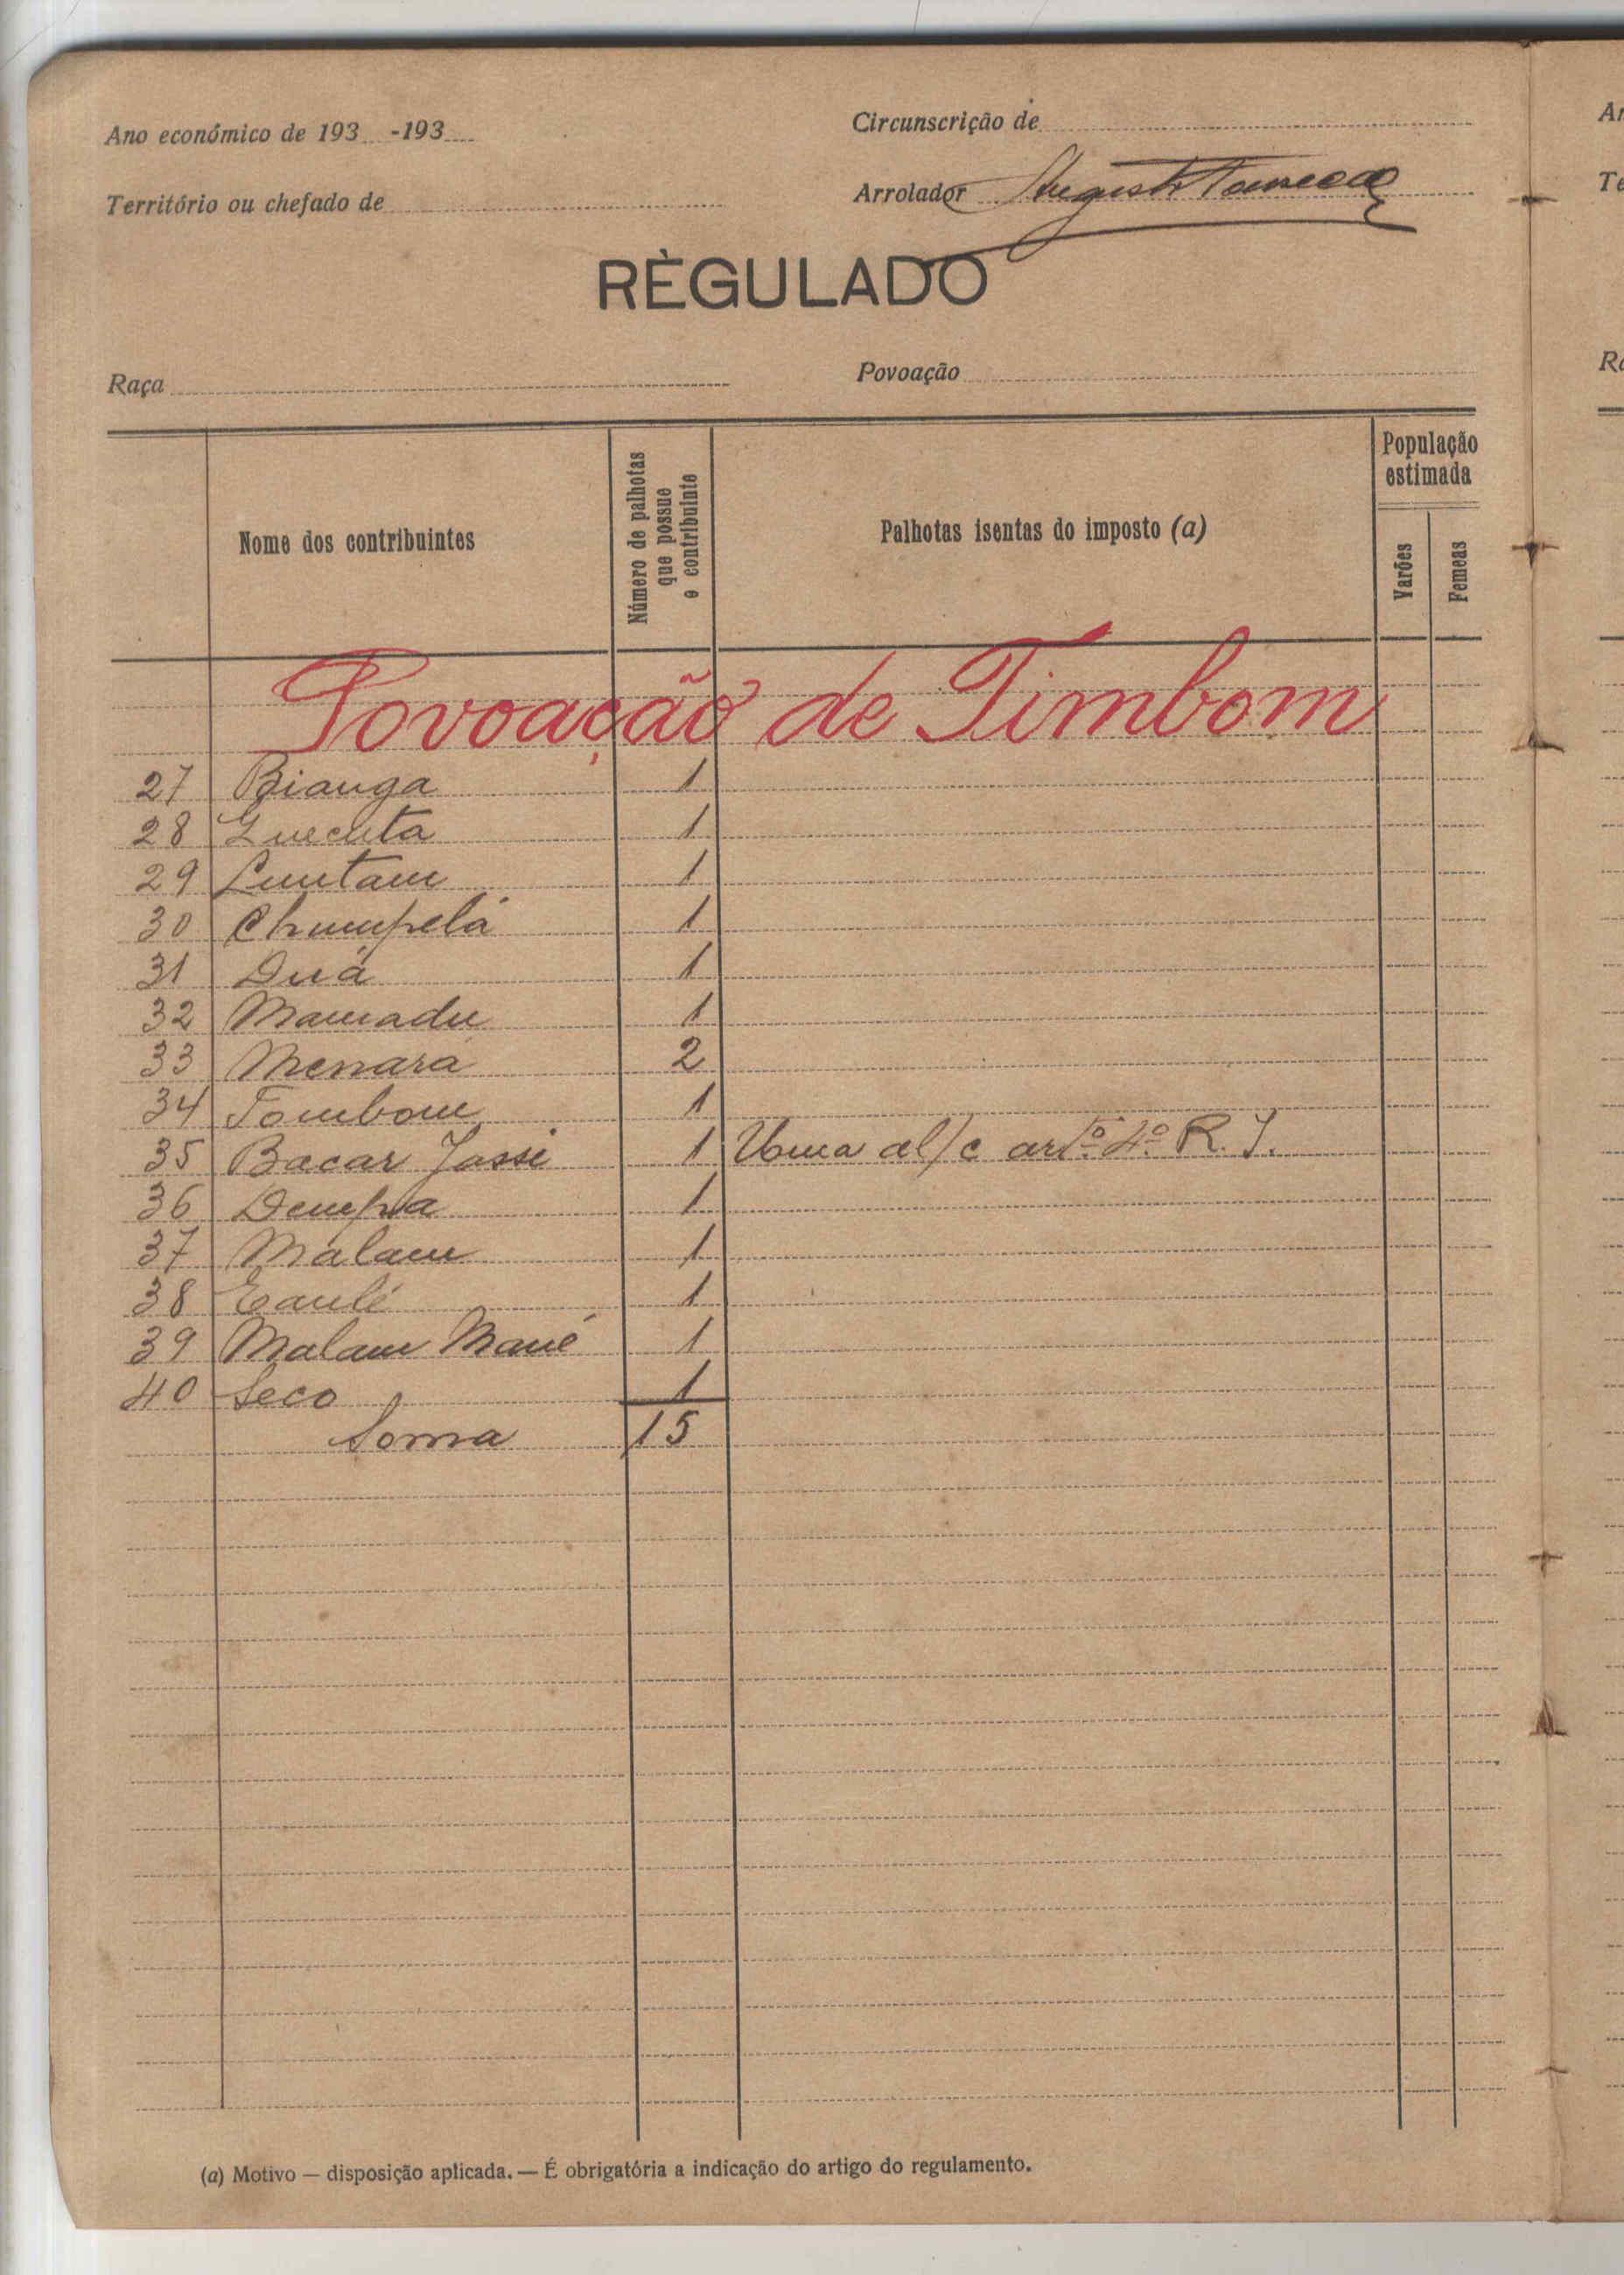 Ano económico de 193 -193
Circunscrição de
Território ou chefado de
Arrolador
RÈGULADO
Raça
Povoação
Nome dos contribuintes
Número de palhotas que possue o contribuinte
Palhotas isentas do imposto (a)
População estimada
Varões
Femeas
Povoação de Timbom
27 Bianga 1
28 1
29 1
30 Chumpelá 1
31 Duá 1
32 Mamadu 1
33 Menara 2
34 Tombom 1
35 Bacar Jassi 1 Uma al/c artº 4º R. I.
36 Dempa 1
37 Malam 1
38 1
39 Malam Mané 1
40 Seco 1
Soma 15
(a) Motivo — disposição aplicada. — É obrigatória a indicação do artigo do regulamento.
Ar
Te
Ra